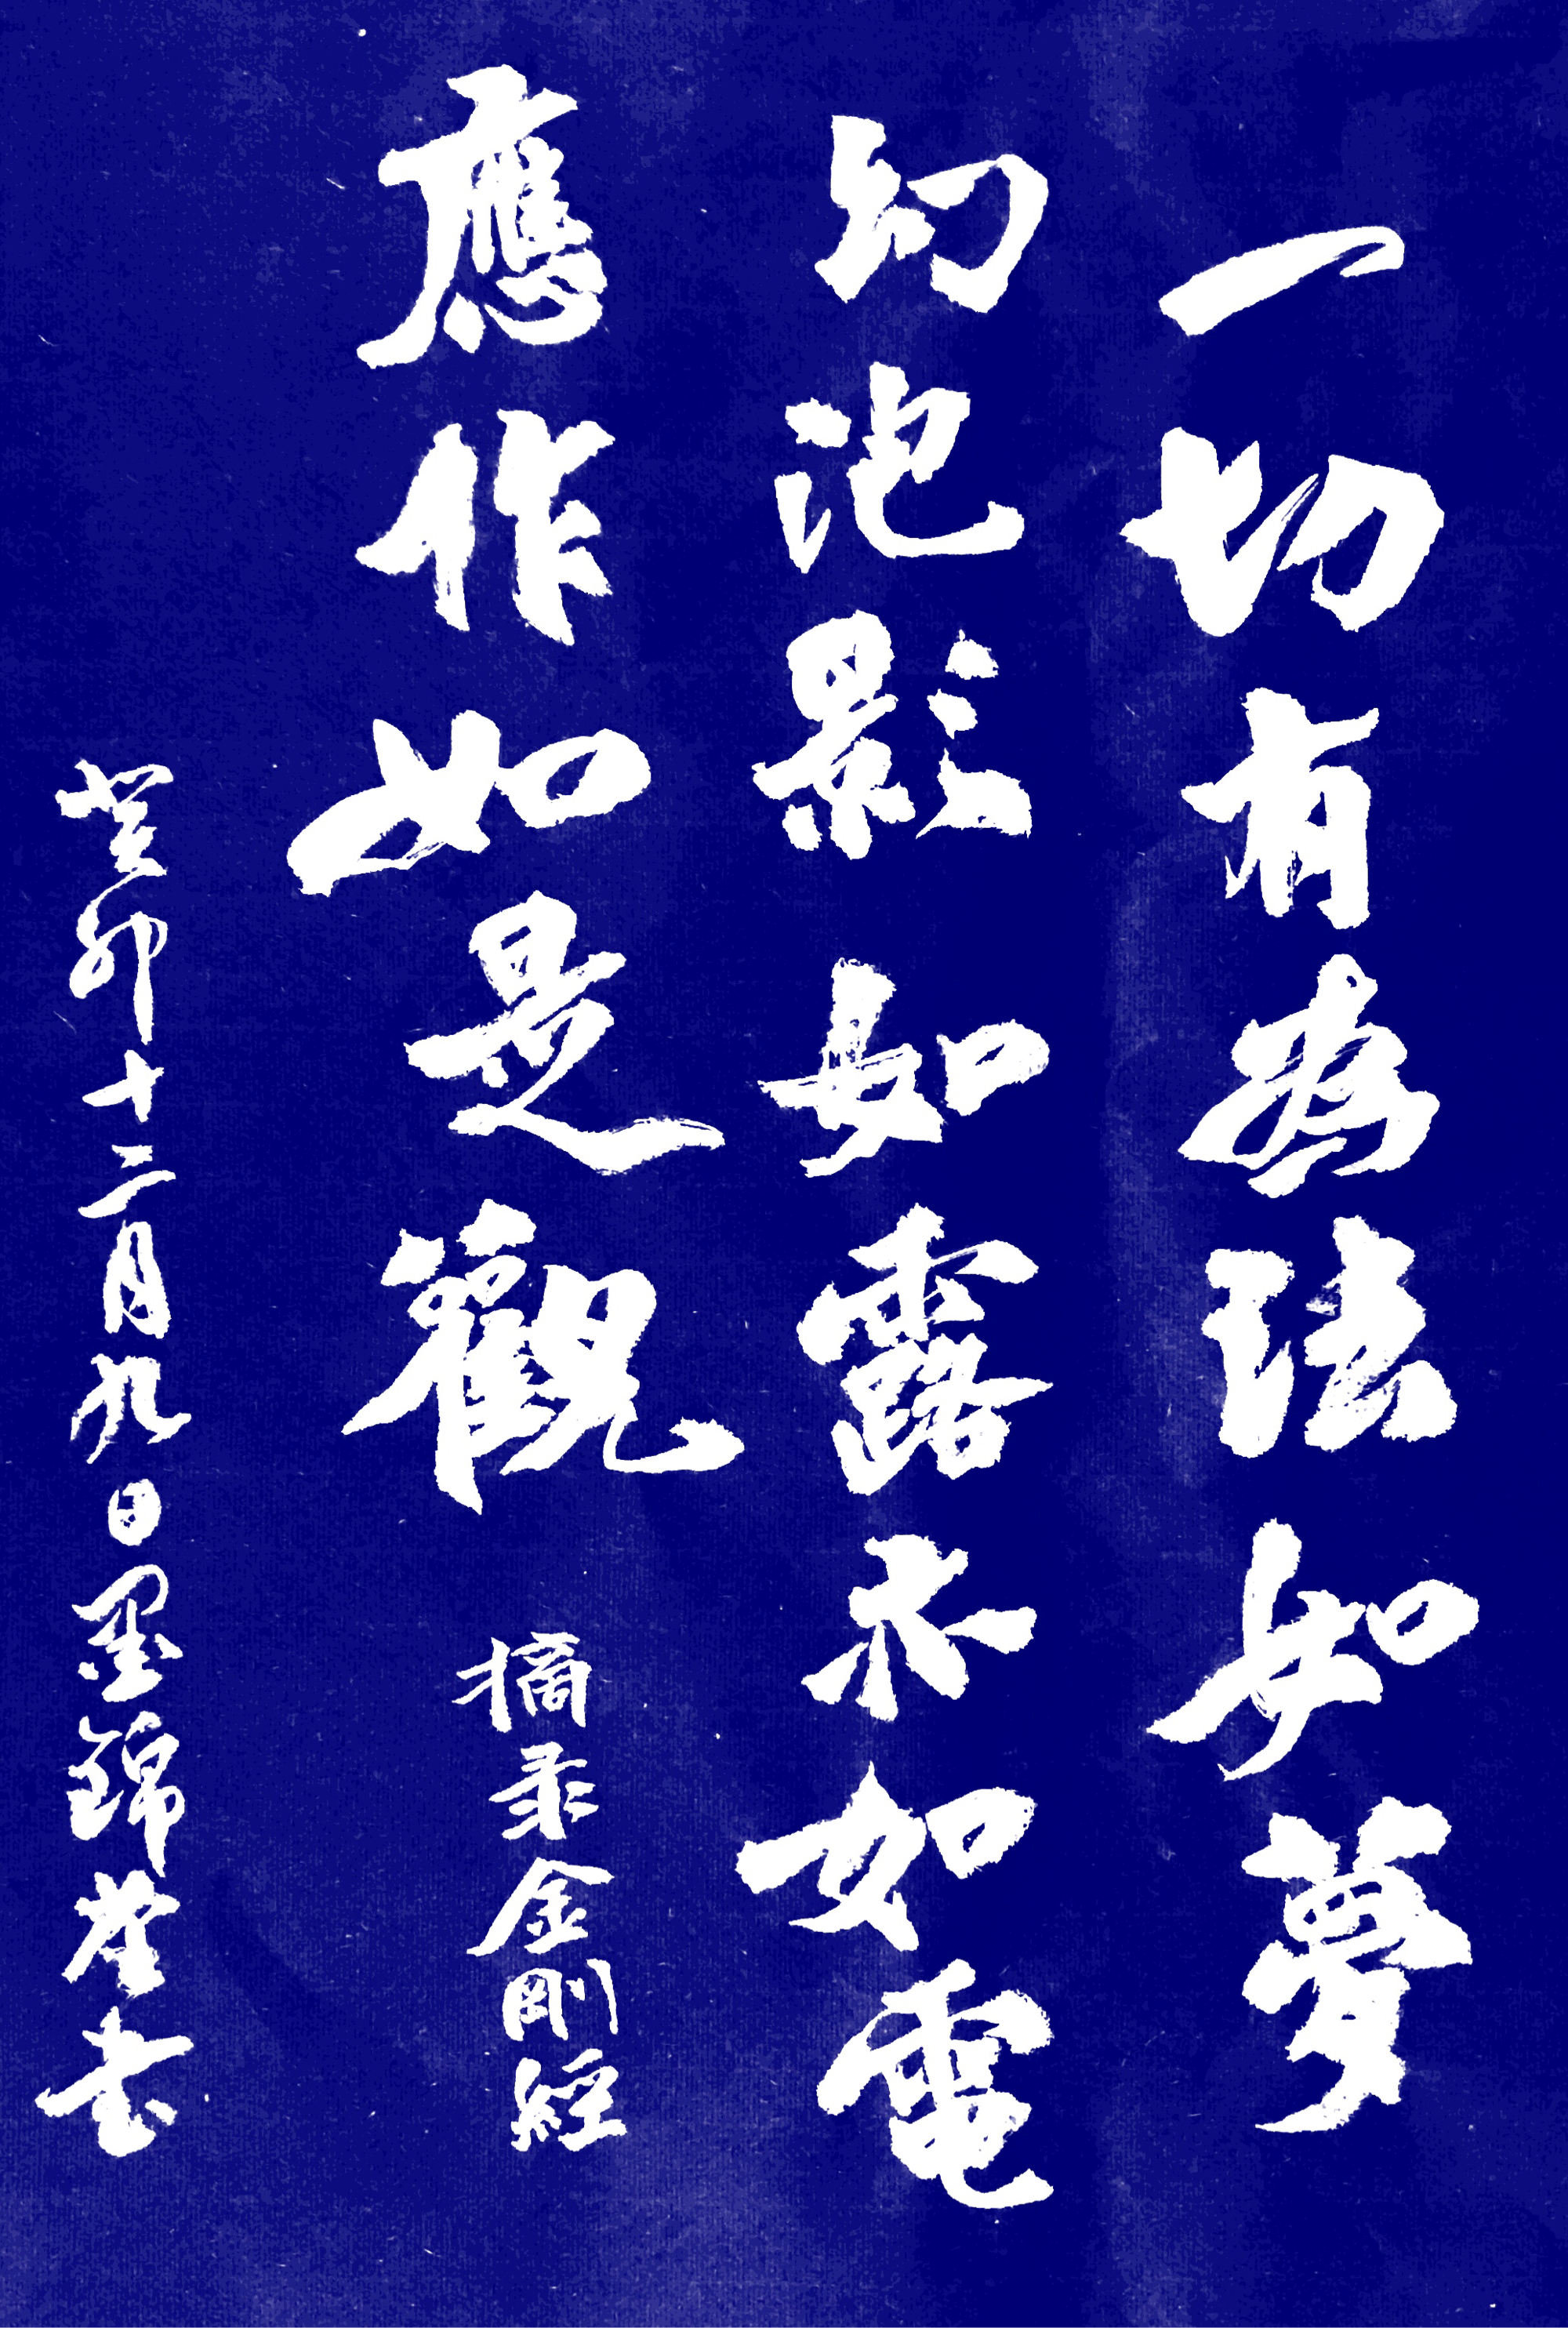 一切有為法如夢
幻泡影如露亦如電
應作如是觀 摘录金剛經
癸卯十二月九日墨錦堂書